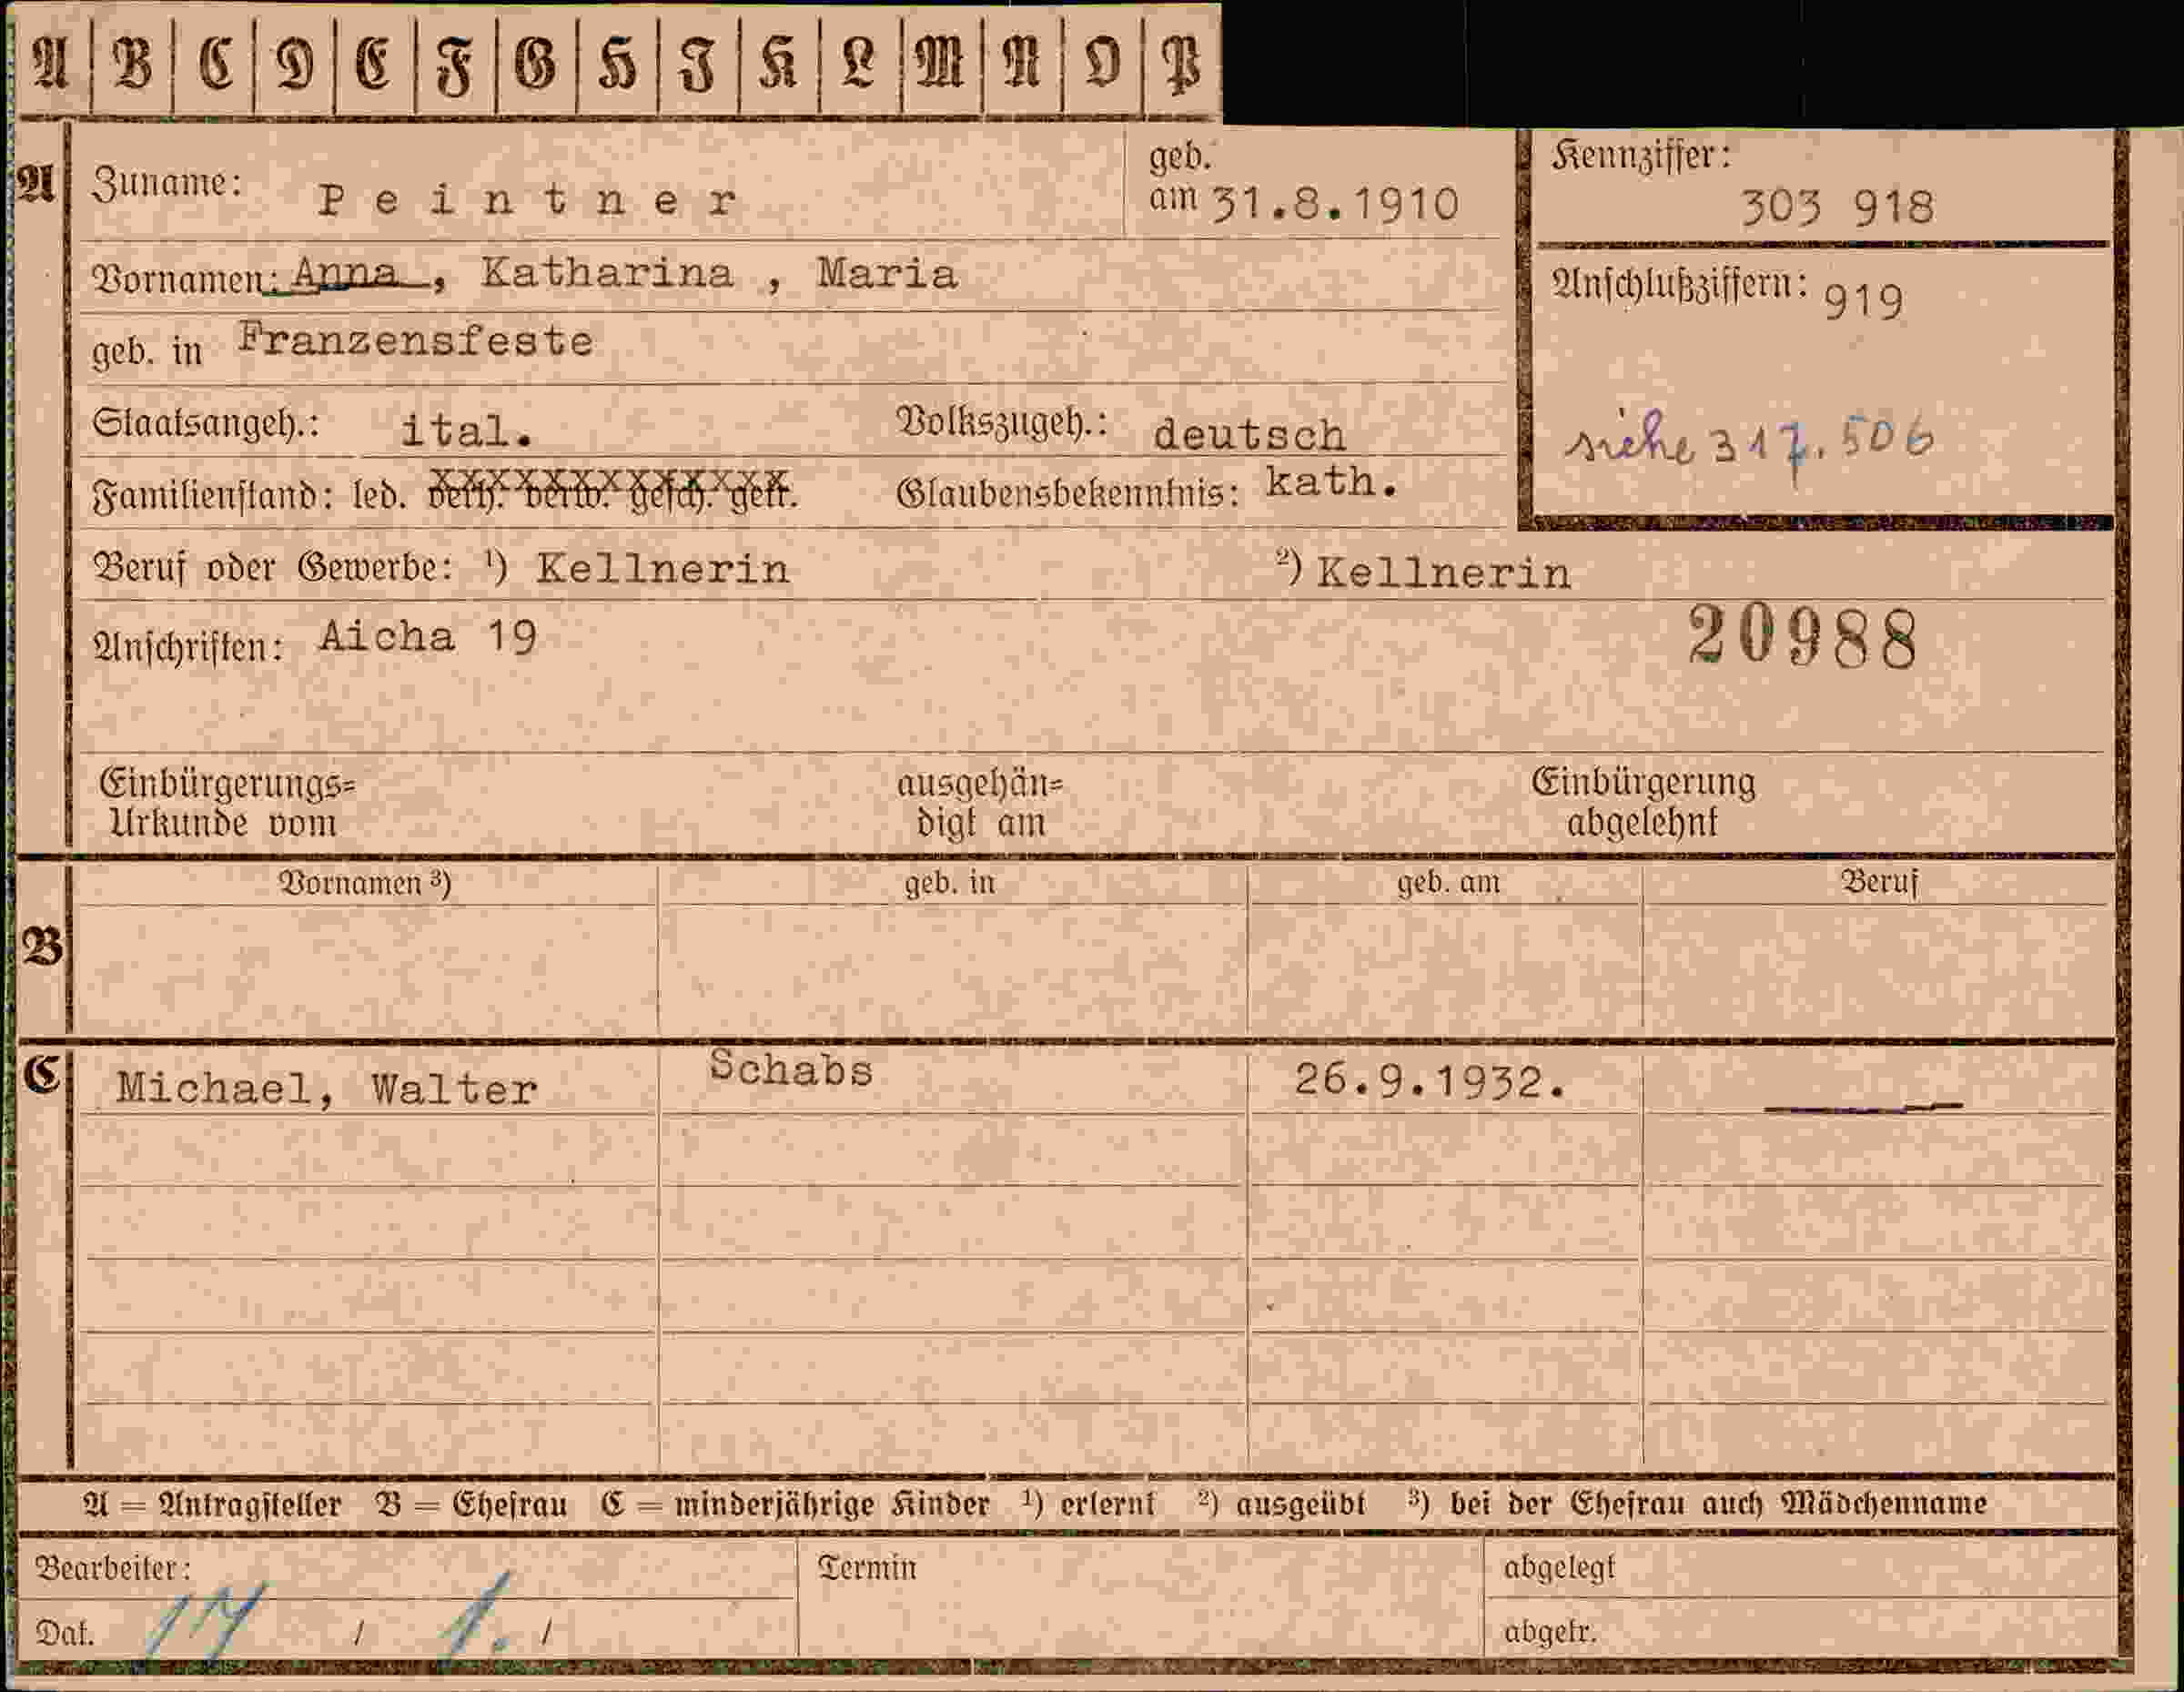 A B C D E F G H I K L M N O P
A Zuname: Peintner geb. am 31.8.1910 Kennziffer: 303 918
Vornamen: Anna, Katharina, Maria Anschlußziffern: 919
geb. in Franzensfeste
Staatsangeh.: ital. Volkszugeh.: deutsch siehe 317.506
Familienstand: led. verh. verw. gesch. getr. Glaubensbekenntnis: kath.
Beruf oder Gewerbe: ¹) Kellnerin ²) Kellnerin
Anschriften: Aicha 19 20988
Einbürgerungs= ausgehän= Einbürgerung
Urkunde vom digt am abgelehnt
Vornamen ³) geb. in geb. am Beruf
B
C Michael, Walter Schabs 26.9.1932.
A = Antragsteller B = Ehefrau C = minderjährige Kinder ¹) erlernt ²) ausgeübt ³) bei der Ehefrau auch Mädchenname
Bearbeiter: Termin abgelegt
Dat. 17 / 1. / abgetr.